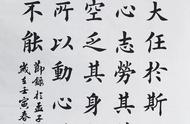 大任於斯
心志勞其
空乏其身
所以動心
不能
節錄於孟子
歲在壬寅春